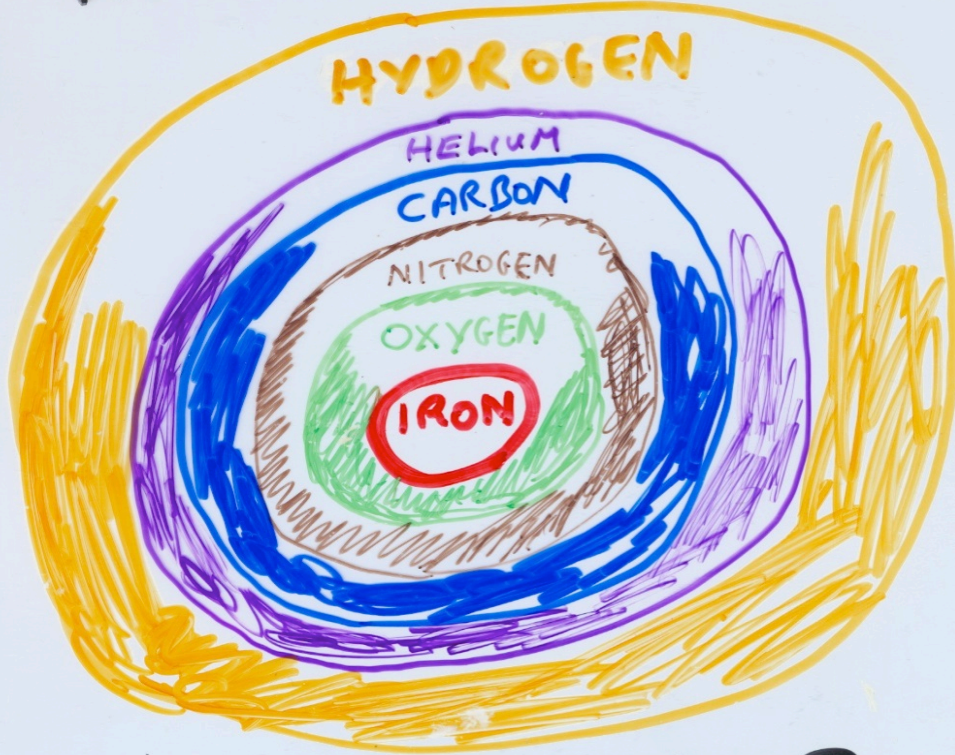 HYDROGEN
HELIUM
CARBON
NITROGEN
OXYGEN
IRON